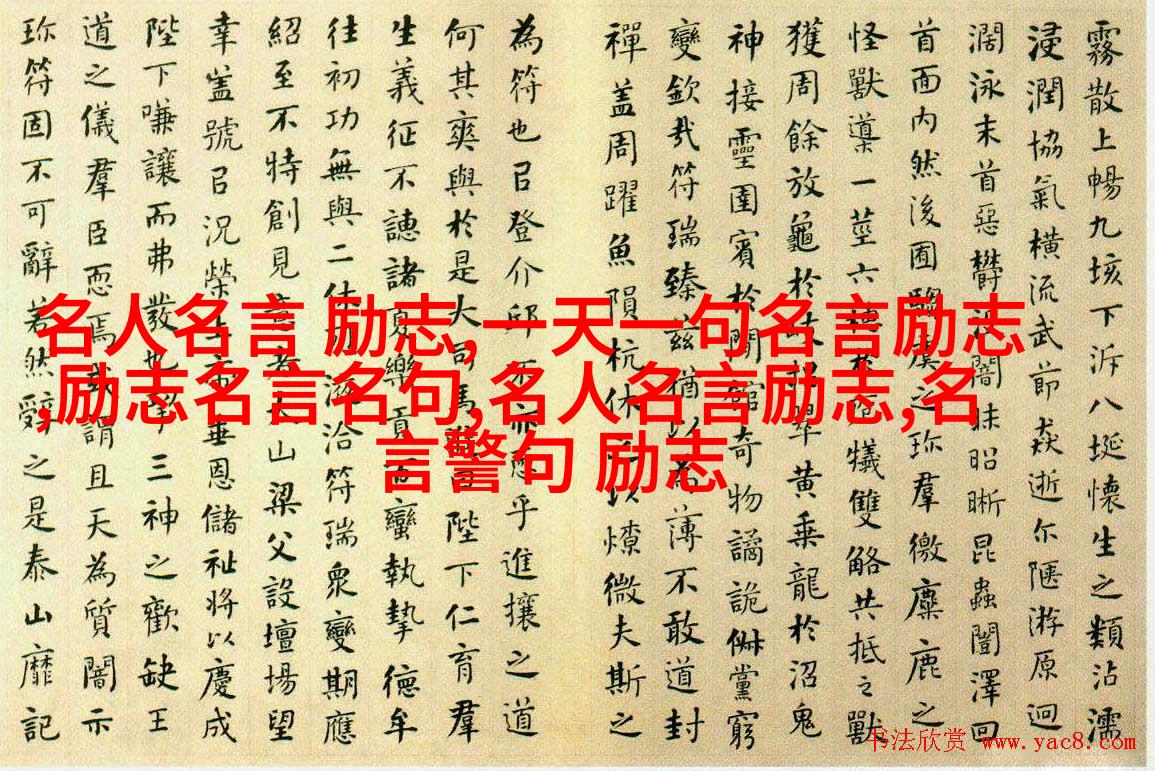 霧散上暢九垓下泝八埏懷生之類沾濡
浸潤協氣橫流武節猋逝尔陿游原迥
濶泳末首惡欝没闇昧昭晰昆蟲闓澤回
首面内然後囿騶虞之珎羣徼麋鹿之
怪獸導一莖六穗於庖犧雙觡共抵之獸
獲周餘放龜於岐招翠黃乘龍於沼鬼
神接靈圉賓於閒館奇物譎詭俶黨窮
變欽哉符瑞臻兹猶以為薄不敢道封
禪盖周躍魚隕杭休之以燎微夫斯之
為符也㠯登介邱不亦恧乎進攘之道
何其爽與於是大司馬進曰陛下仁育羣
生義征不譓諸夏樂貢百蠻執摯德牟
往初功無與二休烈浹洽符瑞衆變期應
紹至不特創見意者太山梁父設壇場望
幸盖號㠯况榮上帝垂恩儲祉將以慶成
陛下嗛讓而弗發也挈三神之歡缺王
道之儀羣臣恧焉或謂且天為質闇示
珎符固不可辭若然辤之是泰山靡記
名人名言 励志,一天一句名言励志
,励志名言名句,名人名言励志,名
言警句 励志
书法欣赏 www.yac8.com